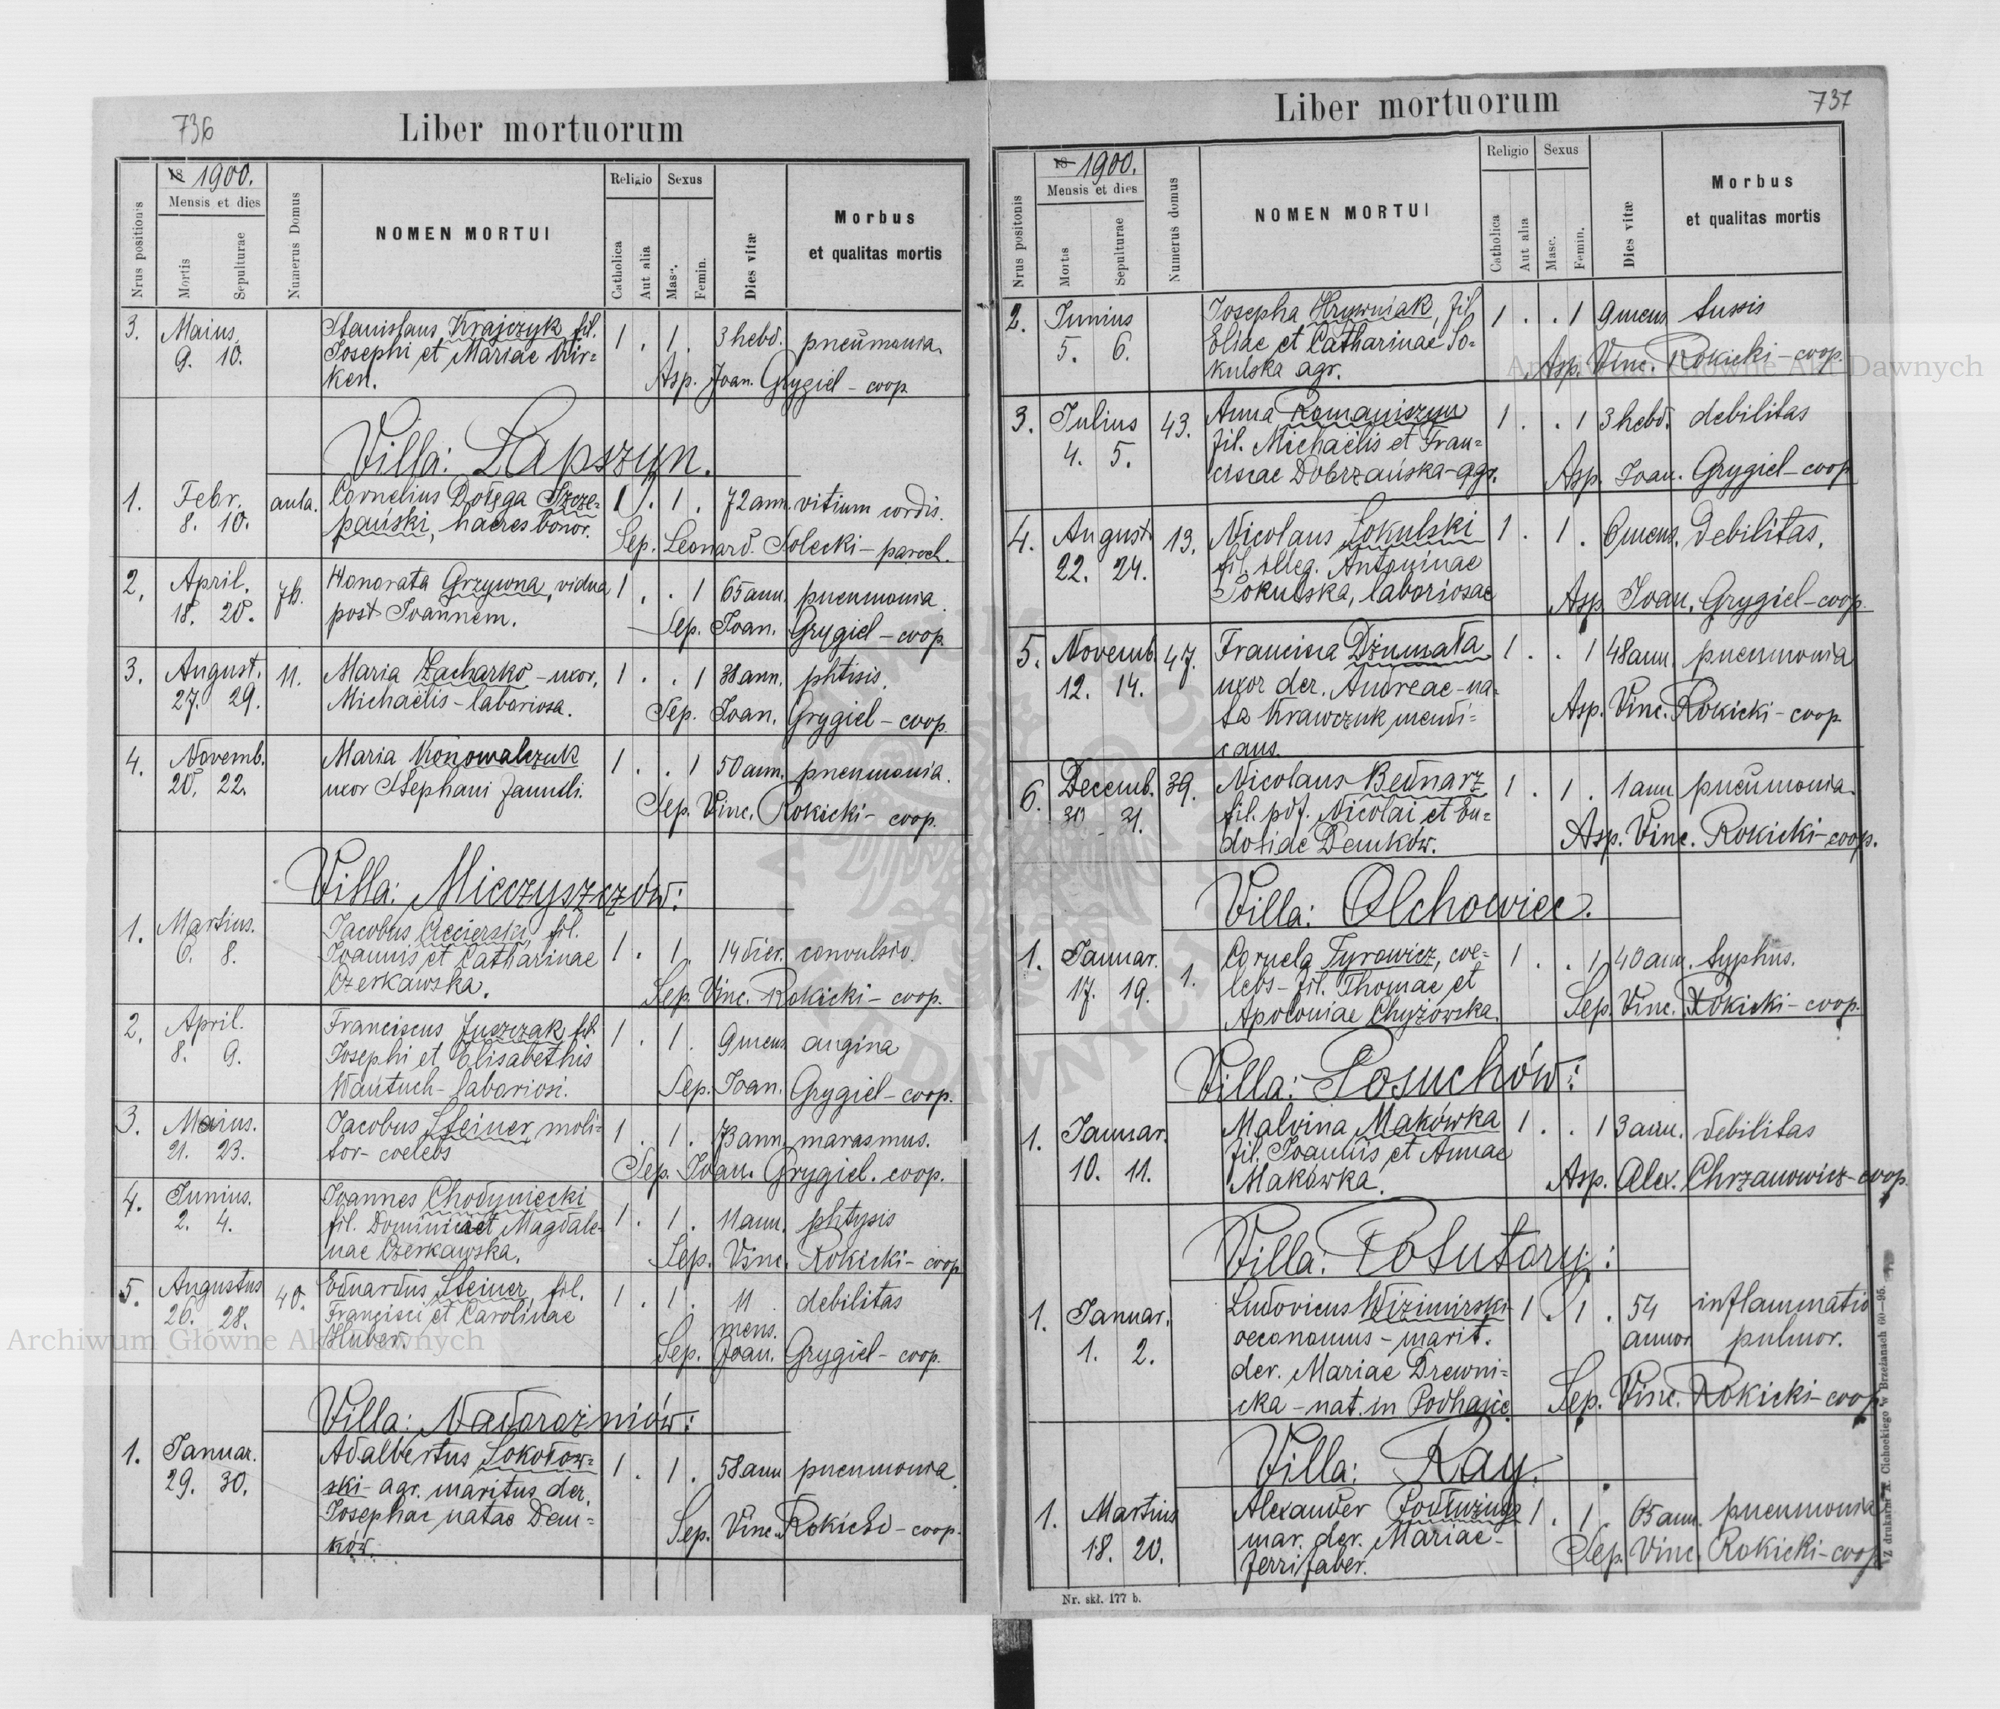 736
Liber mortuorum
Nrus positionis
18 1900.
Mensis et dies
Mortis
Sepulturae
Numerus Domus
NOMEN MORTUI
Religio
Catholica
Aut alia
Sexus
Masc.
Femin.
Dies vitæ
Morbus
et qualitas mortis
3. Maius Stanislaus Krajczyk fil. 1 . 1 . 3 hebd. pneumonia
9. 10. Josephi et Mariae Wir-
ken. Asp. Joan. Grygiel - coop.
Villa: Łapszyn.
1. Febr. aula. Cornelius Dołęga Szcze- 1 . 1 . 72 ann. vitium cordis.
8. 10. pański, haeres bonor.
Sep. Leonard. Solecki - paroch.
2. April. 76. Honorata Grzywna, vidua 1 . . 1 65 ann. pneumonia
18. 20. post Joannem.
Sep. Joan. Grygiel - coop.
3. August. 11. Maria Zacharko - uxor, 1 . . 1 38 ann. phtisis.
27. 29. Michaëlis - labariosa.
Sep. Joan. Grygiel - coop.
4. Novemb. Maria Konowalczuk 1 . . 1 50 ann. pneumonia.
20. 22. uxor Stephani famuli.
Sep. Vinc. Rokicki - coop.
Villa: Mieczyszczów:
1. Martius. Jacobus fil.
6. 8. Joannis et Catharinae 1 . 1 . 14 dier. convulsio.
Czerkawska. Sep. Vinc. Rokicki - coop.
2. April. Franciscus Juszczak fil. 1 . 1 . 9 mens. angina
8. 9. Josephi et Elisabethis
Wantuch - labariosi. Sep. Joan. Grygiel - coop.
3. Maius. Jacobus Steiner, moli- 1 . 1 . 73 ann. marasmus.
21. 23. tor - coelebs
Sep. Joan. Grygiel. coop.
4. Junius. Joannes Chodyniecki
2. 4. fil. Dominici et Magdale- 1 . 1 . 11 ann. phtysis
nae Czerkawska. Sep. Vinc. Rokicki - coop
5. Augustus 40. Eduardus Steiner, fil. 1 . 1 . 11 debilitas
26. 28. Francisci et Carolinae mens.
Huber. Sep. Joan. Grygiel - coop.
Villa: Nadorożniów:
1. Januar. Adalbertus Sokołow- 1 . 1 . 58 ann pneumonia.
29. 30. ski - agr. maritus der.
Josephae natae Dem- Sep. Vinc. Rokicki - coop.
ków.
737
Liber mortuorum
Nrus positonis
18 1900.
Mensis et dies
Mortis
Sepulturae
Numerus domus
NOMEN MORTUI
Religio
Catholica
Aut alia
Sexus
Masc.
Femin.
Dies vitæ
Morbus
et qualitas mortis
2. Junius Josepha Hrywniak, fil. 1 . . 1 9 mens tussis
5. 6. Eliae et Catharinae So-
kulska agr. Asp. Vinc. Rokicki - coop.
3. Julius 43. Anna Romaniszyn 1 . . 1 3 hebd. debilitas
4. 5. fil. Michaëlis et Fran-
ciscae Dobrzańska - agr. Asp. Joan. Grygiel - coop
4. August. 13. Nicolaus Sokulski 1 . 1 . 6 mens. debilitas.
22. 24. fil. illeg. Antoninae
Sokulska, labariosae Asp. Joan. Grygiel - coop.
5. Novemb. 47. Francisca Dżumała 1 . . 1 48 ann. pneumonia
12. 14. uxor der. Andreae - na-
ta Krawczuk mendi- Asp. Vinc. Rokicki - coop
cans.
6. Decemb. 39. Nicolaus Bednarz 1 . 1 . 1 ann pneumonia.
30 - 31. fil. pdf. Nicolai et Eu-
dosiae Demków. Asp. Vinc. Rokicki - coop.
Villa: Olchowiec.
1. Januar. 1. Cornela Tyrowicz, coe- 1 . . 1 40 ann. typhus.
17. 19. lebs - fil. Thomae et
Apoloniae Chyżowska. Sep. Vinc. Rokicki - coop.
Villa: Posuchów:
1. Januar. Malvina Makówka 1 . . 1 3 ann. debilitas
10. 11. fil. Joannis et Annae
Makawka. Asp. Alex. Chrzanowicz - coop.
Villa: Potutory:
1. Januar. Ludovicus Wizimirski 1 . 1 . 54 inflammatio
1. 2. oeconomus - marit. annor pulmor.
der. Mariae Drewni-
cka - nat. in Podhajce. Sep. Vinc. Rokicki - coop
Villa: Ray.
1. Martius Alexander 1 . 1 . 65 ann. pneumonia
18. 20. mar. der. Mariae -
ferrifaber. Sep. Vinc. Rokicki - coop
Nr. skł. 177 b.
Z drukarni K. Ciehockiego w Brzeżanach 60—95.
Archiwum Główne Akt Dawnych
Archiwum Główne Akt Dawnych